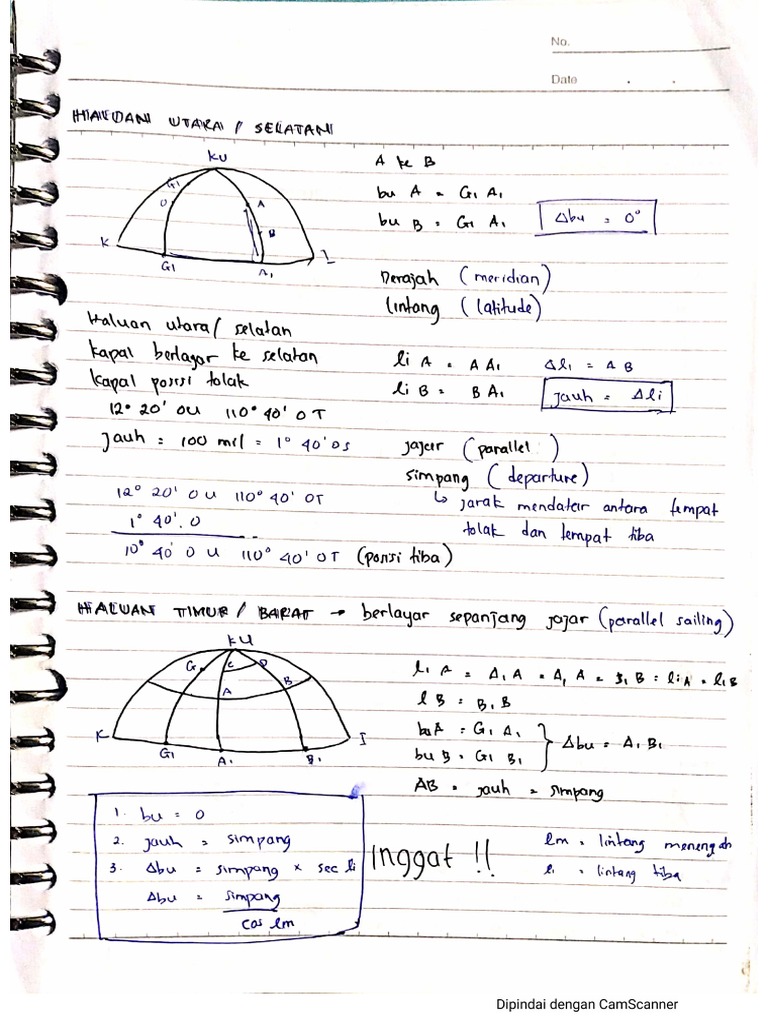 No.
Date . .
HALUAN UTARA / SELATAN
KU
G1
O
A
B
K
I
G1
A1
A ke B
bu A = G1 A1
bu B = G1 A1
Δbu = 0°
Derajah (meridian)
lintang (latitude)
Haluan utara / selatan
kapal berlayar ke selatan
kapal posisi tolak
12° 20' 0 U 110° 40' 0 T
Jauh = 100 mil = 1° 40' 0 S
12° 20' 0 U 110° 40' 0 T
1° 40'. 0
10° 40' 0 U 110° 40' 0 T (posisi tiba)
li A = A A1 Δli = A B
li B = B A1
jauh = Δli
jajar (parallel)
simpang (departure)
↳ jarak mendatar antara tempat
tolak dan tempat tiba
HALUAN TIMUR / BARAT → berlayar sepanjang jajar (parallel sailing)
KU
G
C
D
A
B
K
I
G1
A1
B1
li A = A1 A = A1 A = B1 B = li A = li B
l B = B1 B
bu A = G1 A1
bu B = G1 B1
Δbu = A1 B1
AB = jauh = simpang
1. bu = 0
2. jauh = simpang
3. Δbu = simpang × sec li
Δbu = simpang
cos lm
Inggat !!
lm = lintang menengah
li = lintang tiba
Dipindai dengan CamScanner